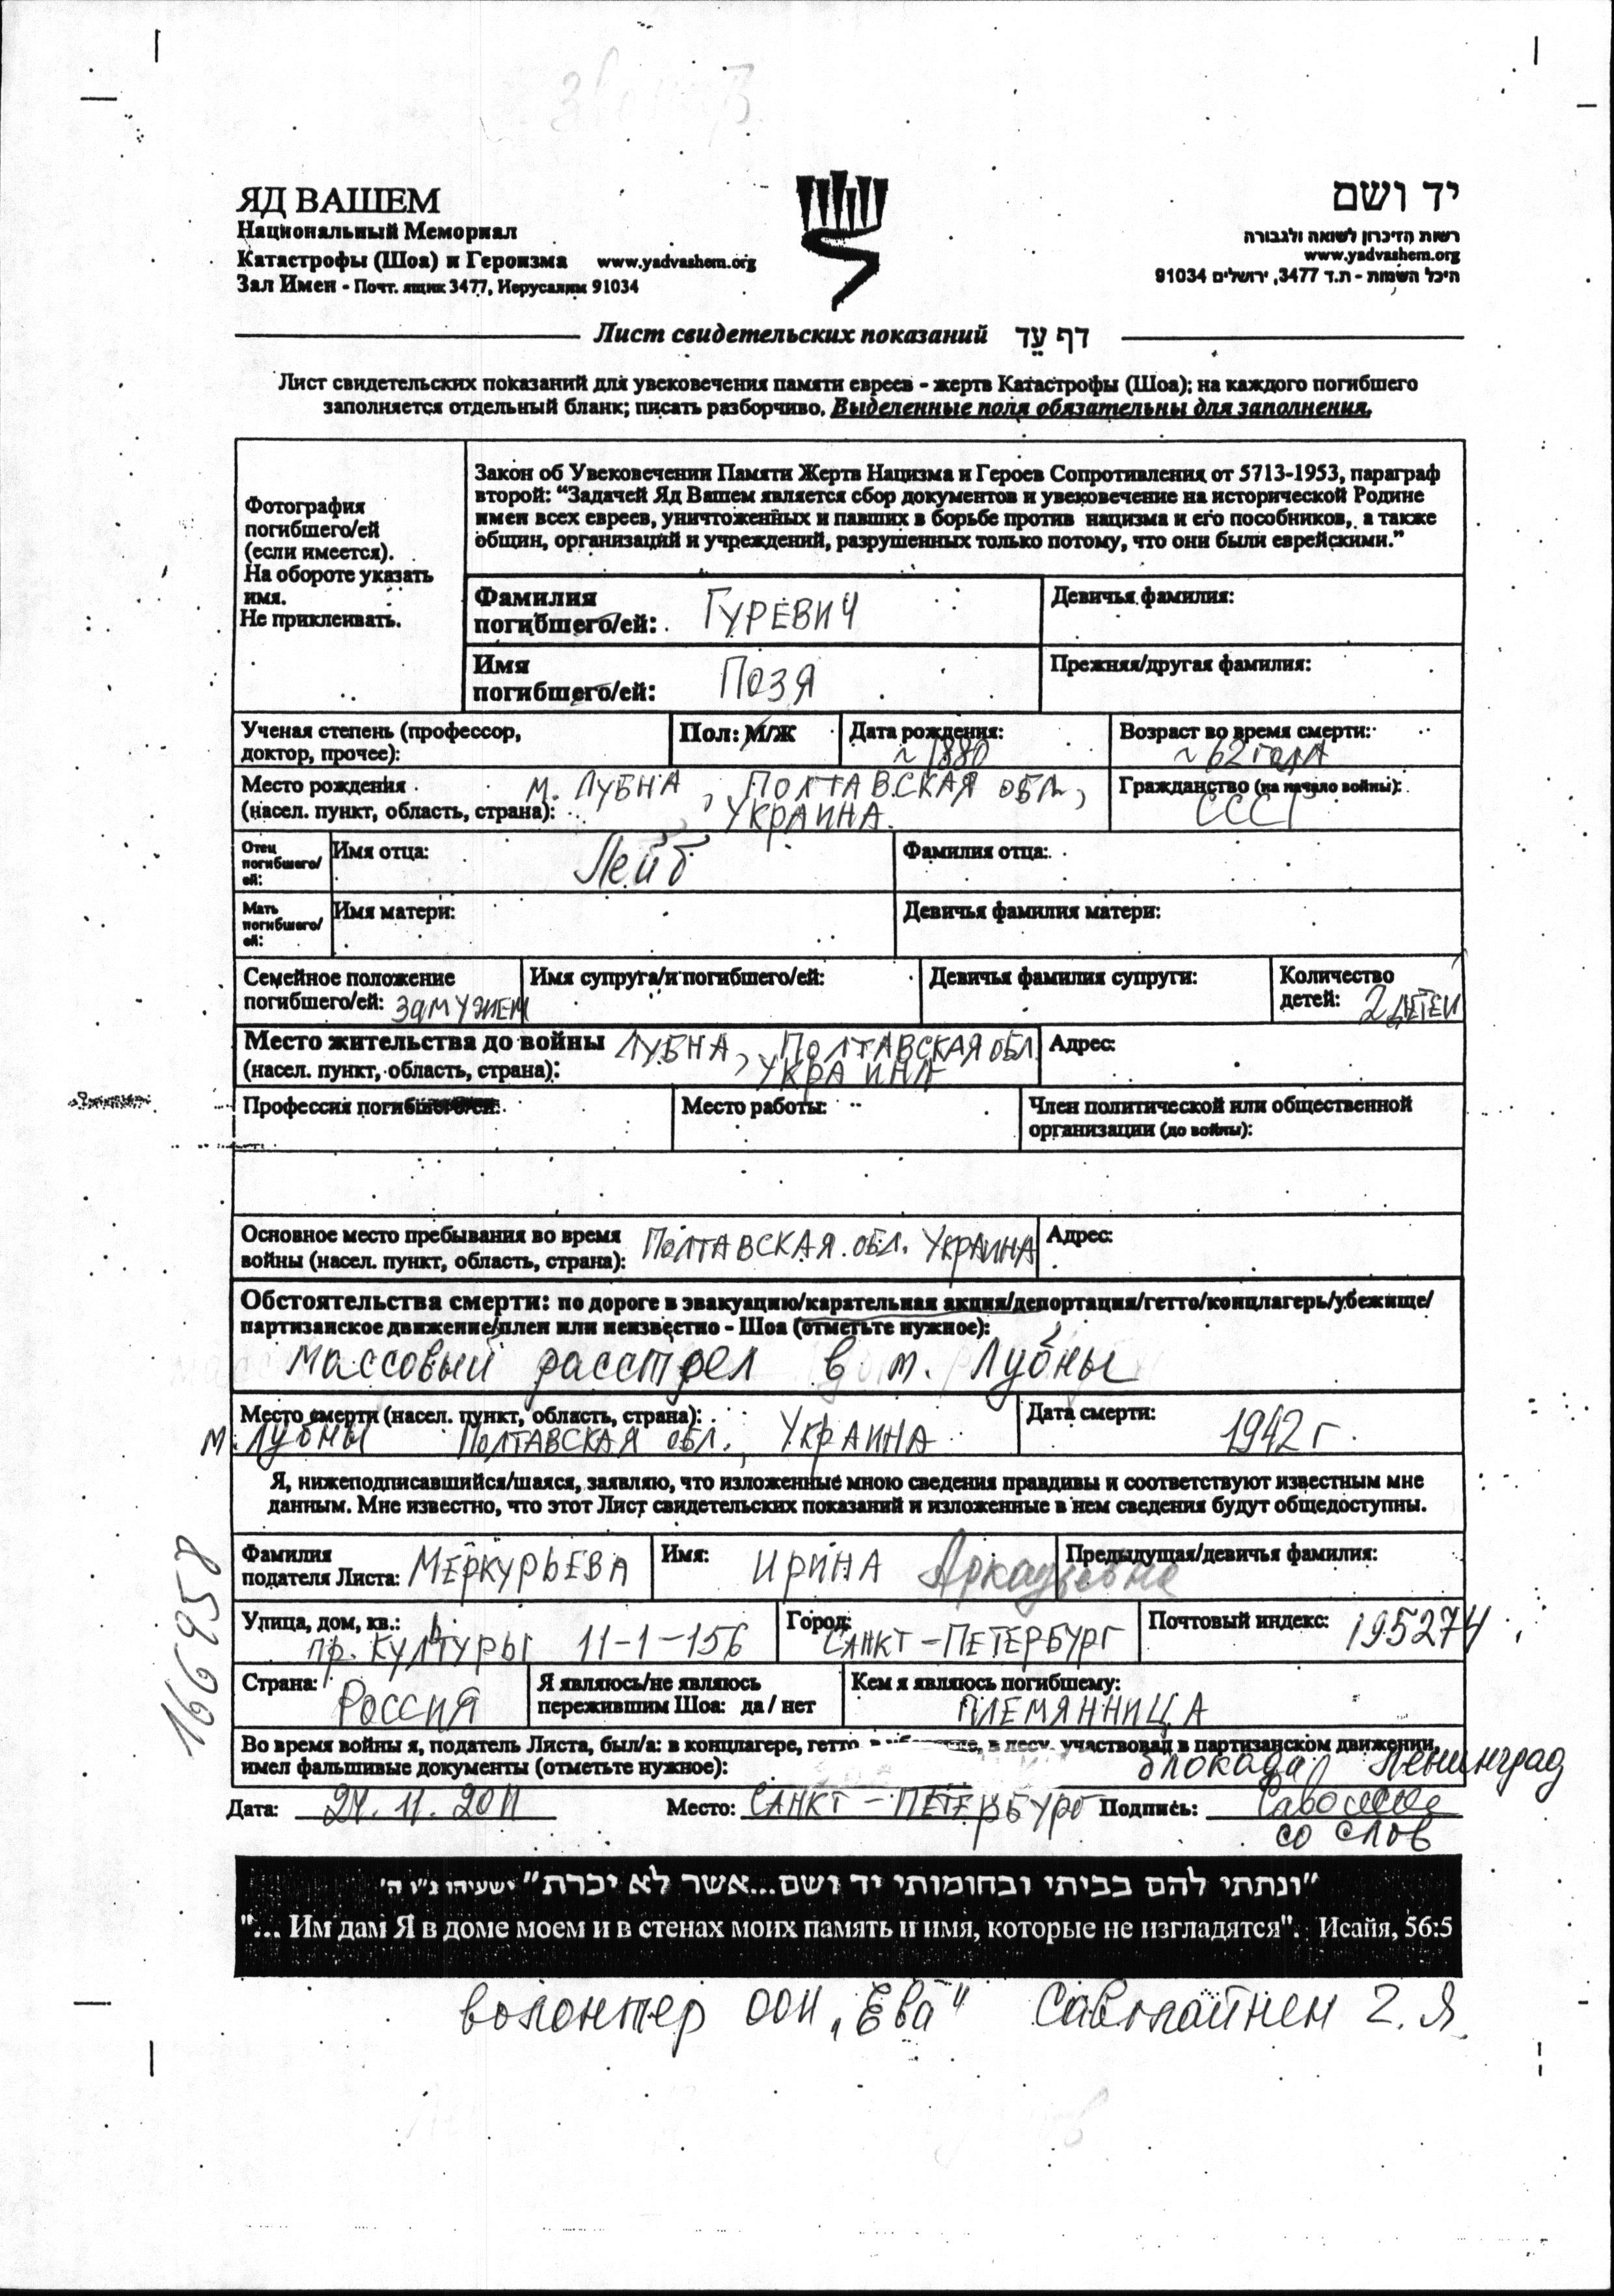 ЯД ВАШЕМ
Национальный Мемориал
Катастрофы (Шоа) и Героизма www.yadvashem.org
Зал Имен - Почт. ящик 3477, Иерусалим 91034
יד ושם
רשות הזיכרון לשואה ולגבורה
www.yadvashem.org
היכל השמות - ת.ד 3477, ירושלים 91034
Лист свидетельских показаний דף עֵד
Лист свидетельских показаний для увековечения памяти евреев - жертв Катастрофы (Шоа); на каждого погибшего
заполняется отдельный бланк; писать разборчиво. Выделенные поля обязательны для заполнения.
Фотография
погибшего/ей
(если имеется).
На обороте указать
имя.
Не приклеивать.
Закон об Увековечении Памяти Жертв Нацизма и Героев Сопротивления от 5713-1953, параграф
второй: "Задачей Яд Вашем является сбор документов и увековечение на исторической Родине
имен всех евреев, уничтоженных и павших в борьбе против нацизма и его пособников, а также
общин, организаций и учреждений, разрушенных только потому, что они были еврейскими."
Фамилия
погибшего/ей: ГУРЕВИЧ
Девичья фамилия:
Имя
погибшего/ей: ПОЗЯ
Прежняя/другая фамилия:
Ученая степень (профессор,
доктор, прочее):
Пол: М/Ж
Дата рождения:
~ 1880
Возраст во время смерти:
~ 62 года
Место рождения м. ЛУБНА, ПОЛТАВСКАЯ ОБЛ,
(насел. пункт, область, страна): УКРАИНА.
Гражданство (на начало войны):
СССР
Отец
погибшего/
ей:
Имя отца: Лейб
Фамилия отца:
Мать
погибшего/
ей:
Имя матери:
Девичья фамилия матери:
Семейное положение
погибшего/ей: замужем
Имя супруга/и погибшего/ей:
Девичья фамилия супруги:
Количество
детей: 2 ДЕТЕЙ
Место жительства до войны ЛУБНА, ПОЛТАВСКАЯ ОБЛ
(насел. пункт, область, страна): УКРАИНА
Адрес:
Профессия погибшего/ей:
Место работы:
Член политической или общественной
организации (до войны):
Основное место пребывания во время
войны (насел. пункт, область, страна): ПОЛТАВСКАЯ. ОБЛ. УКРАИНА
Адрес:
Обстоятельства смерти: по дороге в эвакуацию/карательная акция/депортация/гетто/концлагерь/убежище/
партизанское движение/плен или неизвестно - Шоа (отметьте нужное):
массовый расстрел в м. Лубны
Место смерти (насел. пункт, область, страна):
м. Лубны ПОЛТАВСКАЯ ОБЛ., УКРАИНА
Дата смерти:
1942 г.
Я, нижеподписавшийся/шаяся, заявляю, что изложенные мною сведения правдивы и соответствуют известным мне
данным. Мне известно, что этот Лист свидетельских показаний и изложенные в нем сведения будут общедоступны.
Фамилия
подателя Листа: МЕРКУРЬЕВА
Имя: ИРИНА Аркадьевна
Предыдущая/девичья фамилия:
Улица, дом, кв.:
пр. КУЛЬТУРЫ 11-1-156
Город:
САНКТ-ПЕТЕРБУРГ
Почтовый индекс: 195274
Страна:
РОССИЯ
Я являюсь/не являюсь
пережившим Шоа: да / нет
Кем я являюсь погибшему:
ПЛЕМЯННИЦА
Во время войны я, податель Листа, был/а: в концлагере, гетто, в убежище, в лесу, участвовал в партизанском движении,
имел фальшивые документы (отметьте нужное): блокада Ленинград
Дата: 24.11.2011 Место: САНКТ-ПЕТЕРБУРГ Подпись:
со слов
166958
"ונתתי להם בביתי ובחומותי יד ושם...אשר לא יכרת" ישעיהו נ"ו ה'
"... Им дам Я в доме моем и в стенах моих память и имя, которые не изгладятся". Исайя, 56:5
волонтер ООИ „Ева" Саволайнен Г. Я.